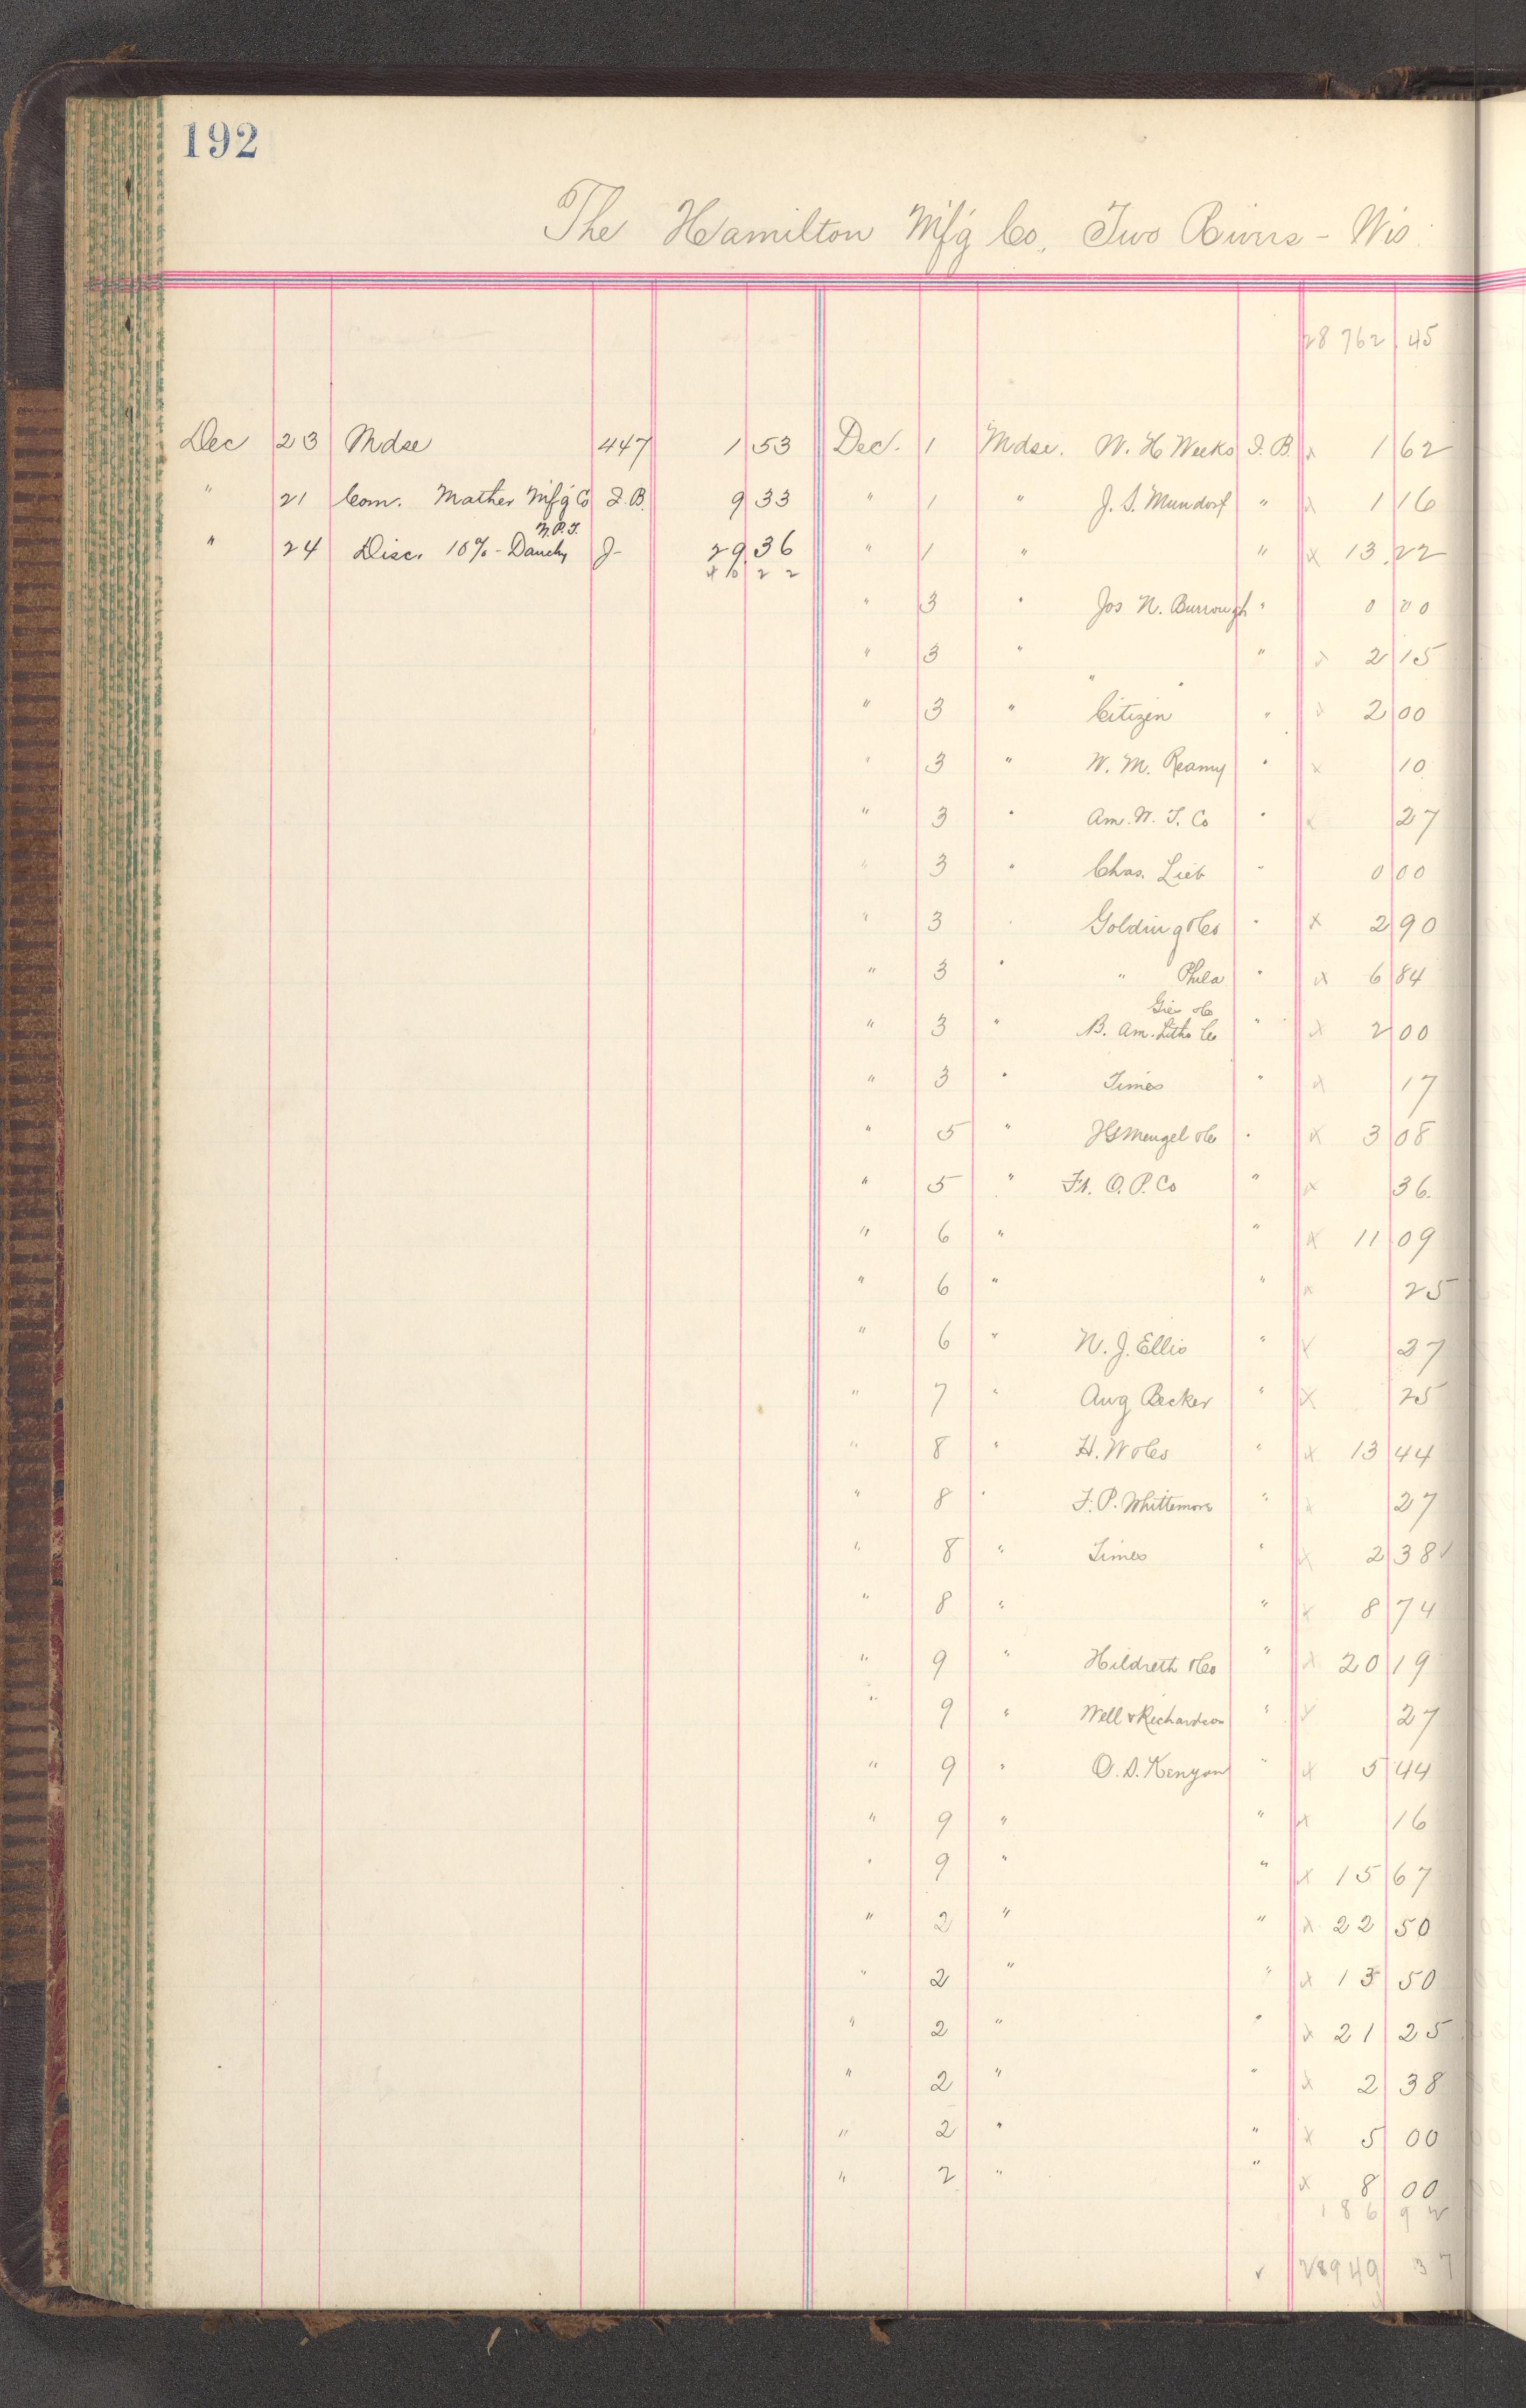 192
The Hamilton Mf'g Co, Two Rivers - Wis.
28 762 45
Dec 23 Mdse 447 1 53
" 21 Com. Mather Mf'g Co I.B. 9 33
N.P.T.
" 24 Disc. 10% - Dauchy J- 29 36
40 22
Dec. 1 Mdse. W. H Weeks I.B. x 1 62
" 1 " J. S. Mundorf " x 1 16
" 1 " " x 13.22
" 3 " Jos N. Burrough " 0 00
" 3 " " " " x 2 15
" 3 " Citizen " x 2 00
" 3 " W. M. Reamy " x 10
" 3 " Am. N. T. Co " x 27
" 3 " Chas. Lieb " 0 00
" 3 " Golding &Co " x 2 90
" 3 " " Phila " x 6 84
Gies &Co
" 3 " B. Am. Litho Co " x 2 00
" 3 " Times " x 17
" 5 " Mengel &Co " x 3 08
" 5 " Ft. O. P. Co " x 36.
" 6 " " x 11 09
" 6 " " x 25
" 6 " N. J. Ellis " x 27
" 7 " Aug Becker " x 25
" 8 " H. W &Co " x 13 44
" 8 " F. P. Whittemore " x 27
" 8 " Times " x 2 38
" 8 " " x 8 74
" 9 " Hildreth &Co " x 20 19
" 9 " Well & Richardson " x 27
" 9 " O. D. Kenyon " x 5 44
" 9 " " x 16
" 9 " " x 15 67
" 2 " " x 22 50
" 2 " " x 13 50
" 2 " " x 21 25
" 2 " " x 2 38
" 2 " " x 5 00
" 2 " " x 8 00
186 92
✓ 28949 37